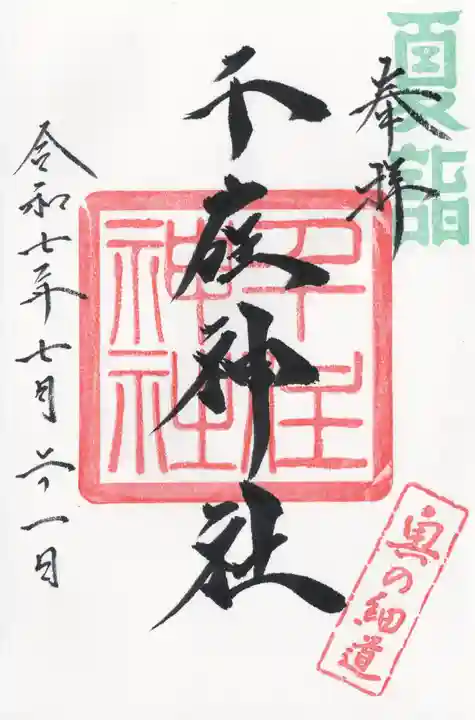 夏詣
奉拝
千住神社
千住神社
令和七年七月廿一日
奥の細道